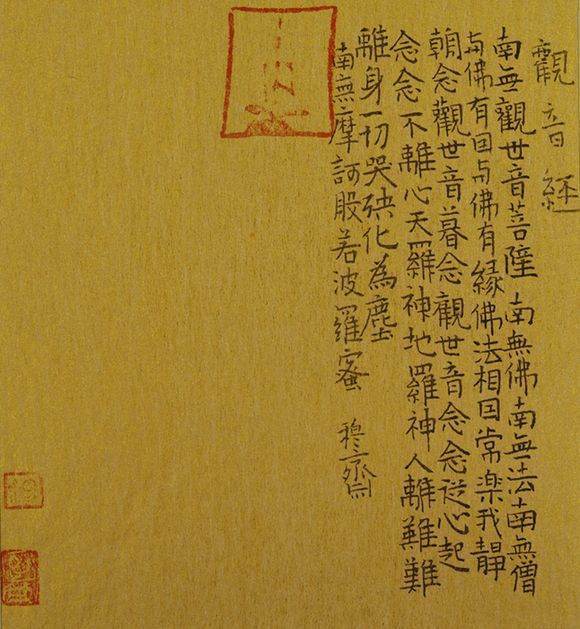 觀音経
南無觀世音菩薩南無佛南無法南無僧
与佛有因与佛有縁佛法相因常楽我靜
朝念觀世音暮念觀世音念念從心起
念念不離心天羅神地羅神人離難難
離身一切哭殃化為塵
南無摩訶股若波羅蜜 穆齋